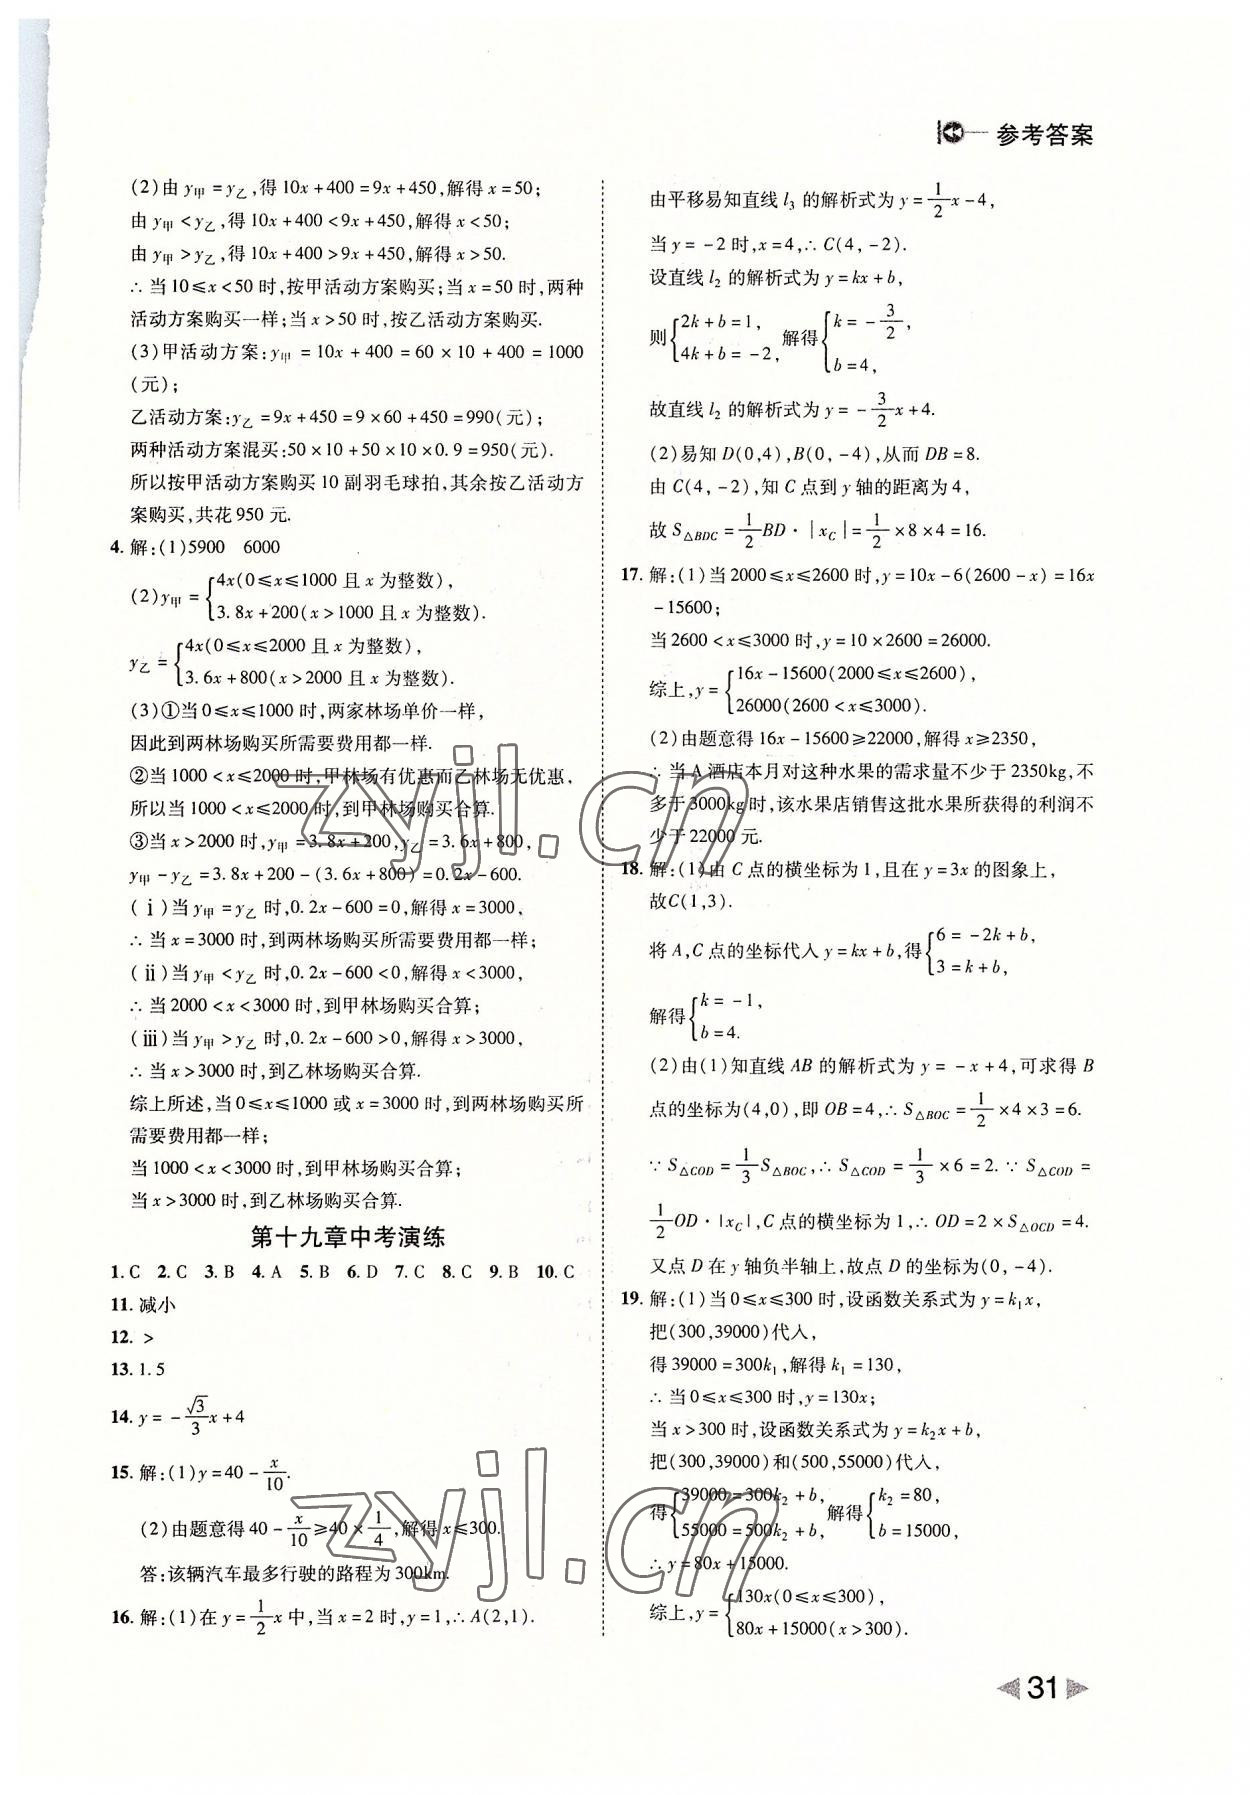 参考答案
(2)由 y甲 = y乙,得 10x + 400 = 9x + 450,解得 x = 50;
由 y甲 < y乙,得 10x + 400 < 9x + 450,解得 x < 50;
由 y甲 > y乙,得 10x + 400 > 9x + 450,解得 x > 50.
∴ 当 10 ≤ x < 50 时,按甲活动方案购买;当 x = 50 时,两种
活动方案购买一样;当 x > 50 时,按乙活动方案购买.
(3)甲活动方案:y甲 = 10x + 400 = 60 × 10 + 400 = 1000
(元);
乙活动方案:y乙 = 9x + 450 = 9 × 60 + 450 = 990(元);
两种活动方案混买:50 × 10 + 50 × 10 × 0.9 = 950(元).
所以按甲活动方案购买 10 副羽毛球拍,其余按乙活动方
案购买,共花 950 元.
4. 解:(1)5900 6000
(2)y甲 = { 4x(0 ≤ x ≤ 1000 且 x 为整数),
3.8x + 200(x > 1000 且 x 为整数).
y乙 = { 4x(0 ≤ x ≤ 2000 且 x 为整数),
3.6x + 800(x > 2000 且 x 为整数).
(3)①当 0 ≤ x ≤ 1000 时,两家林场单价一样,
因此到两林场购买所需要费用都一样.
②当 1000 < x ≤ 2000 时,甲林场有优惠而乙林场无优惠,
所以当 1000 < x ≤ 2000 时,到甲林场购买合算.
③当 x > 2000 时,y甲 = 3.8x + 200,y乙 = 3.6x + 800,
y甲 - y乙 = 3.8x + 200 - (3.6x + 800) = 0.2x - 600.
(ⅰ)当 y甲 = y乙 时,0.2x - 600 = 0,解得 x = 3000,
∴ 当 x = 3000 时,到两林场购买所需要费用都一样;
(ⅱ)当 y甲 < y乙 时,0.2x - 600 < 0,解得 x < 3000,
∴ 当 2000 < x < 3000 时,到甲林场购买合算;
(ⅲ)当 y甲 > y乙 时,0.2x - 600 > 0,解得 x > 3000,
∴ 当 x > 3000 时,到乙林场购买合算.
综上所述,当 0 ≤ x ≤ 1000 或 x = 3000 时,到两林场购买所
需要费用都一样;
当 1000 < x < 3000 时,到甲林场购买合算;
当 x > 3000 时,到乙林场购买合算.
第十九章中考演练
1. C 2. C 3. B 4. A 5. B 6. D 7. C 8. C 9. B 10. C
11. 减小
12. >
13. 1.5
14. y = -√3/3 x + 4
15. 解:(1)y = 40 - x/10.
(2)由题意得 40 - x/10 ≥ 40 × 1/4,解得 x ≤ 300.
答:该辆汽车最多行驶的路程为 300km.
16. 解:(1)在 y = 1/2 x 中,当 x = 2 时,y = 1,∴ A(2,1).
由平移易知直线 l₃ 的解析式为 y = 1/2 x - 4,
当 y = -2 时,x = 4,∴ C(4,-2).
设直线 l₂ 的解析式为 y = kx + b,
则{ 2k + b = 1, 4k + b = -2, 解得{ k = -3/2, b = 4,
故直线 l₂ 的解析式为 y = -3/2 x + 4.
(2)易知 D(0,4),B(0,-4),从而 DB = 8.
由 C(4,-2),知 C 点到 y 轴的距离为 4,
故 S△BDC = 1/2 BD · |xC| = 1/2 × 8 × 4 = 16.
17. 解:(1)当 2000 ≤ x ≤ 2600 时,y = 10x - 6(2600 - x) = 16x
- 15600;
当 2600 < x ≤ 3000 时,y = 10 × 2600 = 26000.
综上,y = { 16x - 15600(2000 ≤ x ≤ 2600),
26000(2600 < x ≤ 3000).
(2)由题意得 16x - 15600 ≥ 22000,解得 x ≥ 2350,
∴ 当 A 酒店本月对这种水果的需求量不少于 2350kg,不
多于 3000kg 时,该水果店销售这批水果所获得的利润不
少于 22000 元.
18. 解:(1)由 C 点的横坐标为 1,且在 y = 3x 的图象上,
故C(1,3).
将 A,C 点的坐标代入 y = kx + b,得{ 6 = -2k + b, 3 = k + b,
解得{ k = -1, b = 4.
(2)由(1)知直线 AB 的解析式为 y = -x + 4,可求得 B
点的坐标为(4,0),即 OB = 4,∴ S△BOC = 1/2 × 4 × 3 = 6.
∵ S△COD = 1/3 S△BOC,∴ S△COD = 1/3 × 6 = 2. ∵ S△COD =
1/2 OD · |xC|,C 点的横坐标为 1,∴ OD = 2 × S△OCD = 4.
又点 D 在 y 轴负半轴上,故点 D 的坐标为(0,-4).
19. 解:(1)当 0 ≤ x ≤ 300 时,设函数关系式为 y = k₁x,
把(300,39000)代入,
得 39000 = 300k₁,解得 k₁ = 130,
∴ 当 0 ≤ x ≤ 300 时,y = 130x;
当 x > 300 时,设函数关系式为 y = k₂x + b,
把(300,39000)和(500,55000)代入,
得{ 39000 = 300k₂ + b, 55000 = 500k₂ + b, 解得{ k₂ = 80, b = 15000,
∴ y = 80x + 15000.
综上,y = { 130x(0 ≤ x ≤ 300),
80x + 15000(x > 300).
31
zyjl.cn
zyjl.cn